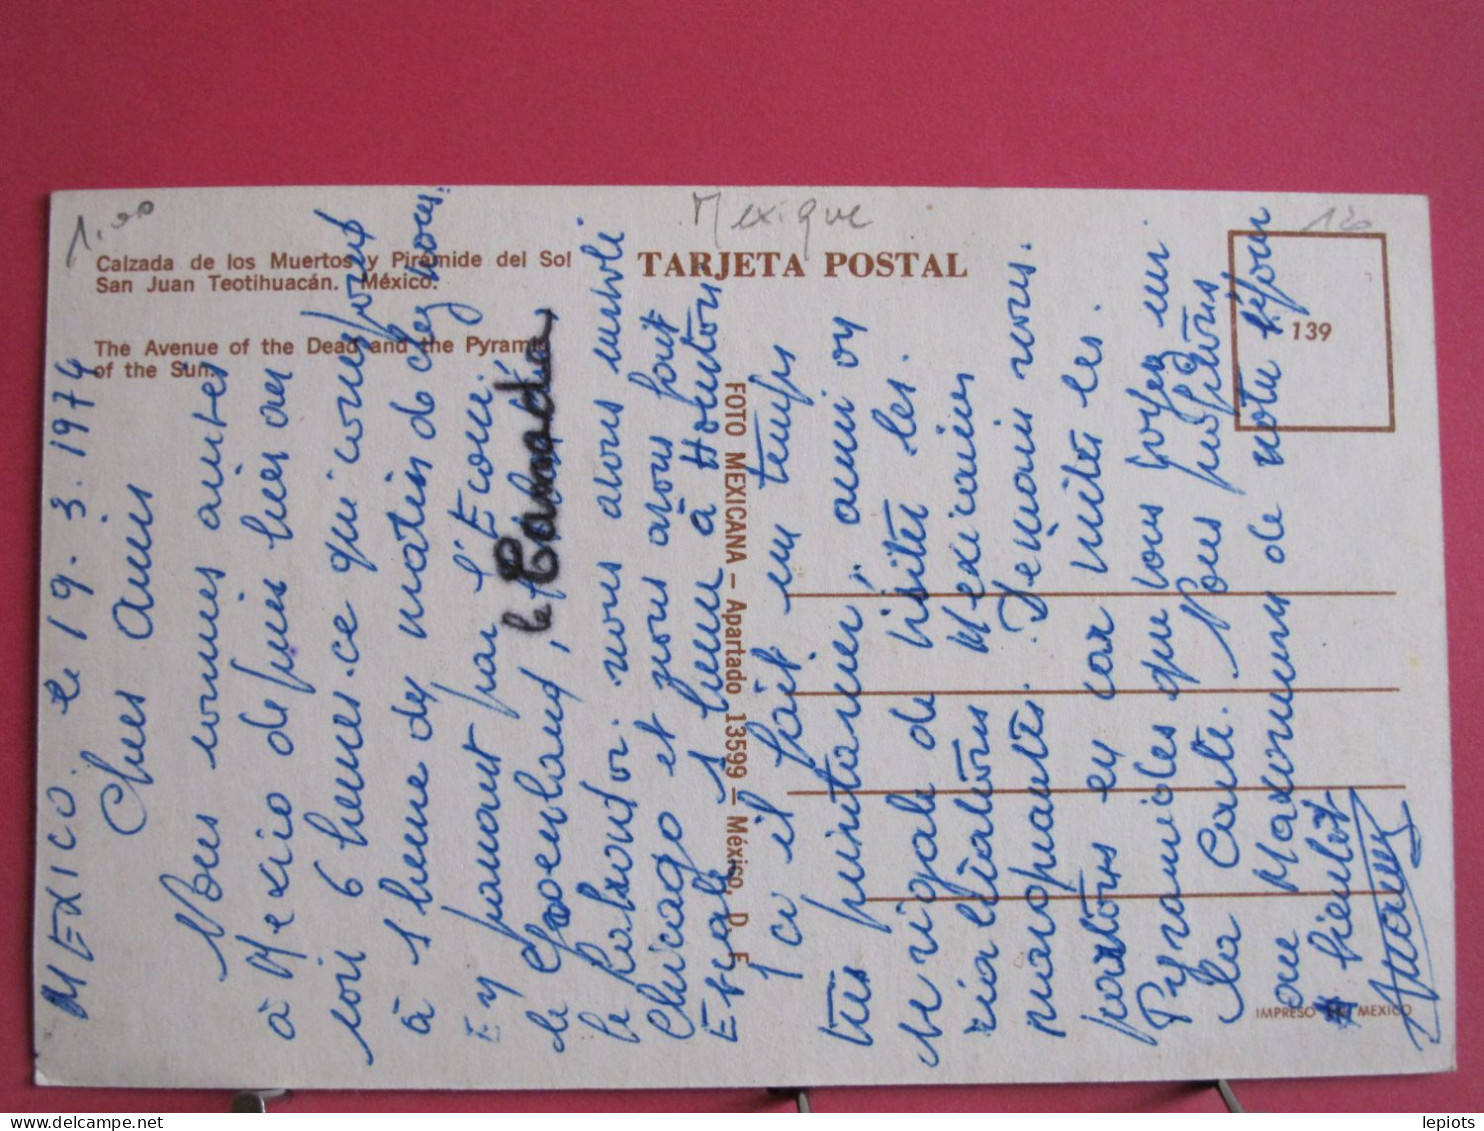 1.00
Mexique
120
Calzada de los Muertos y Pirámide del Sol
San Juan Teotihuacán. México.
The Avenue of the Dead and the Pyramid
of the Sun.
TARJETA POSTAL
139
FOTO MEXICANA – Apartado 13599 – México, D. F.
IMPRESO EN MEXICO
MEXICO le 19.3.1974
Chers Amis
Nous sommes arrivés
à Mexico depuis hier au
soir 6 heures. ce qui correspond
à 1 heure du matin de chez nous.
En passant par l'Ecosse
le Groenland, le Canada
le Labrador. nous avons survolé
Chicago et nous avons fait
Escale 1 heure à Houston
Ici il fait un temps
très printanier, aussi on
se régale de visiter les.
réalisations Mexicaines
marquantes. Demain nous.
partons en car visite les.
Pyramides que vous voyez sur
la Carte. Nous profitons
au Maximum de notre séjour
A bientot
lepiots